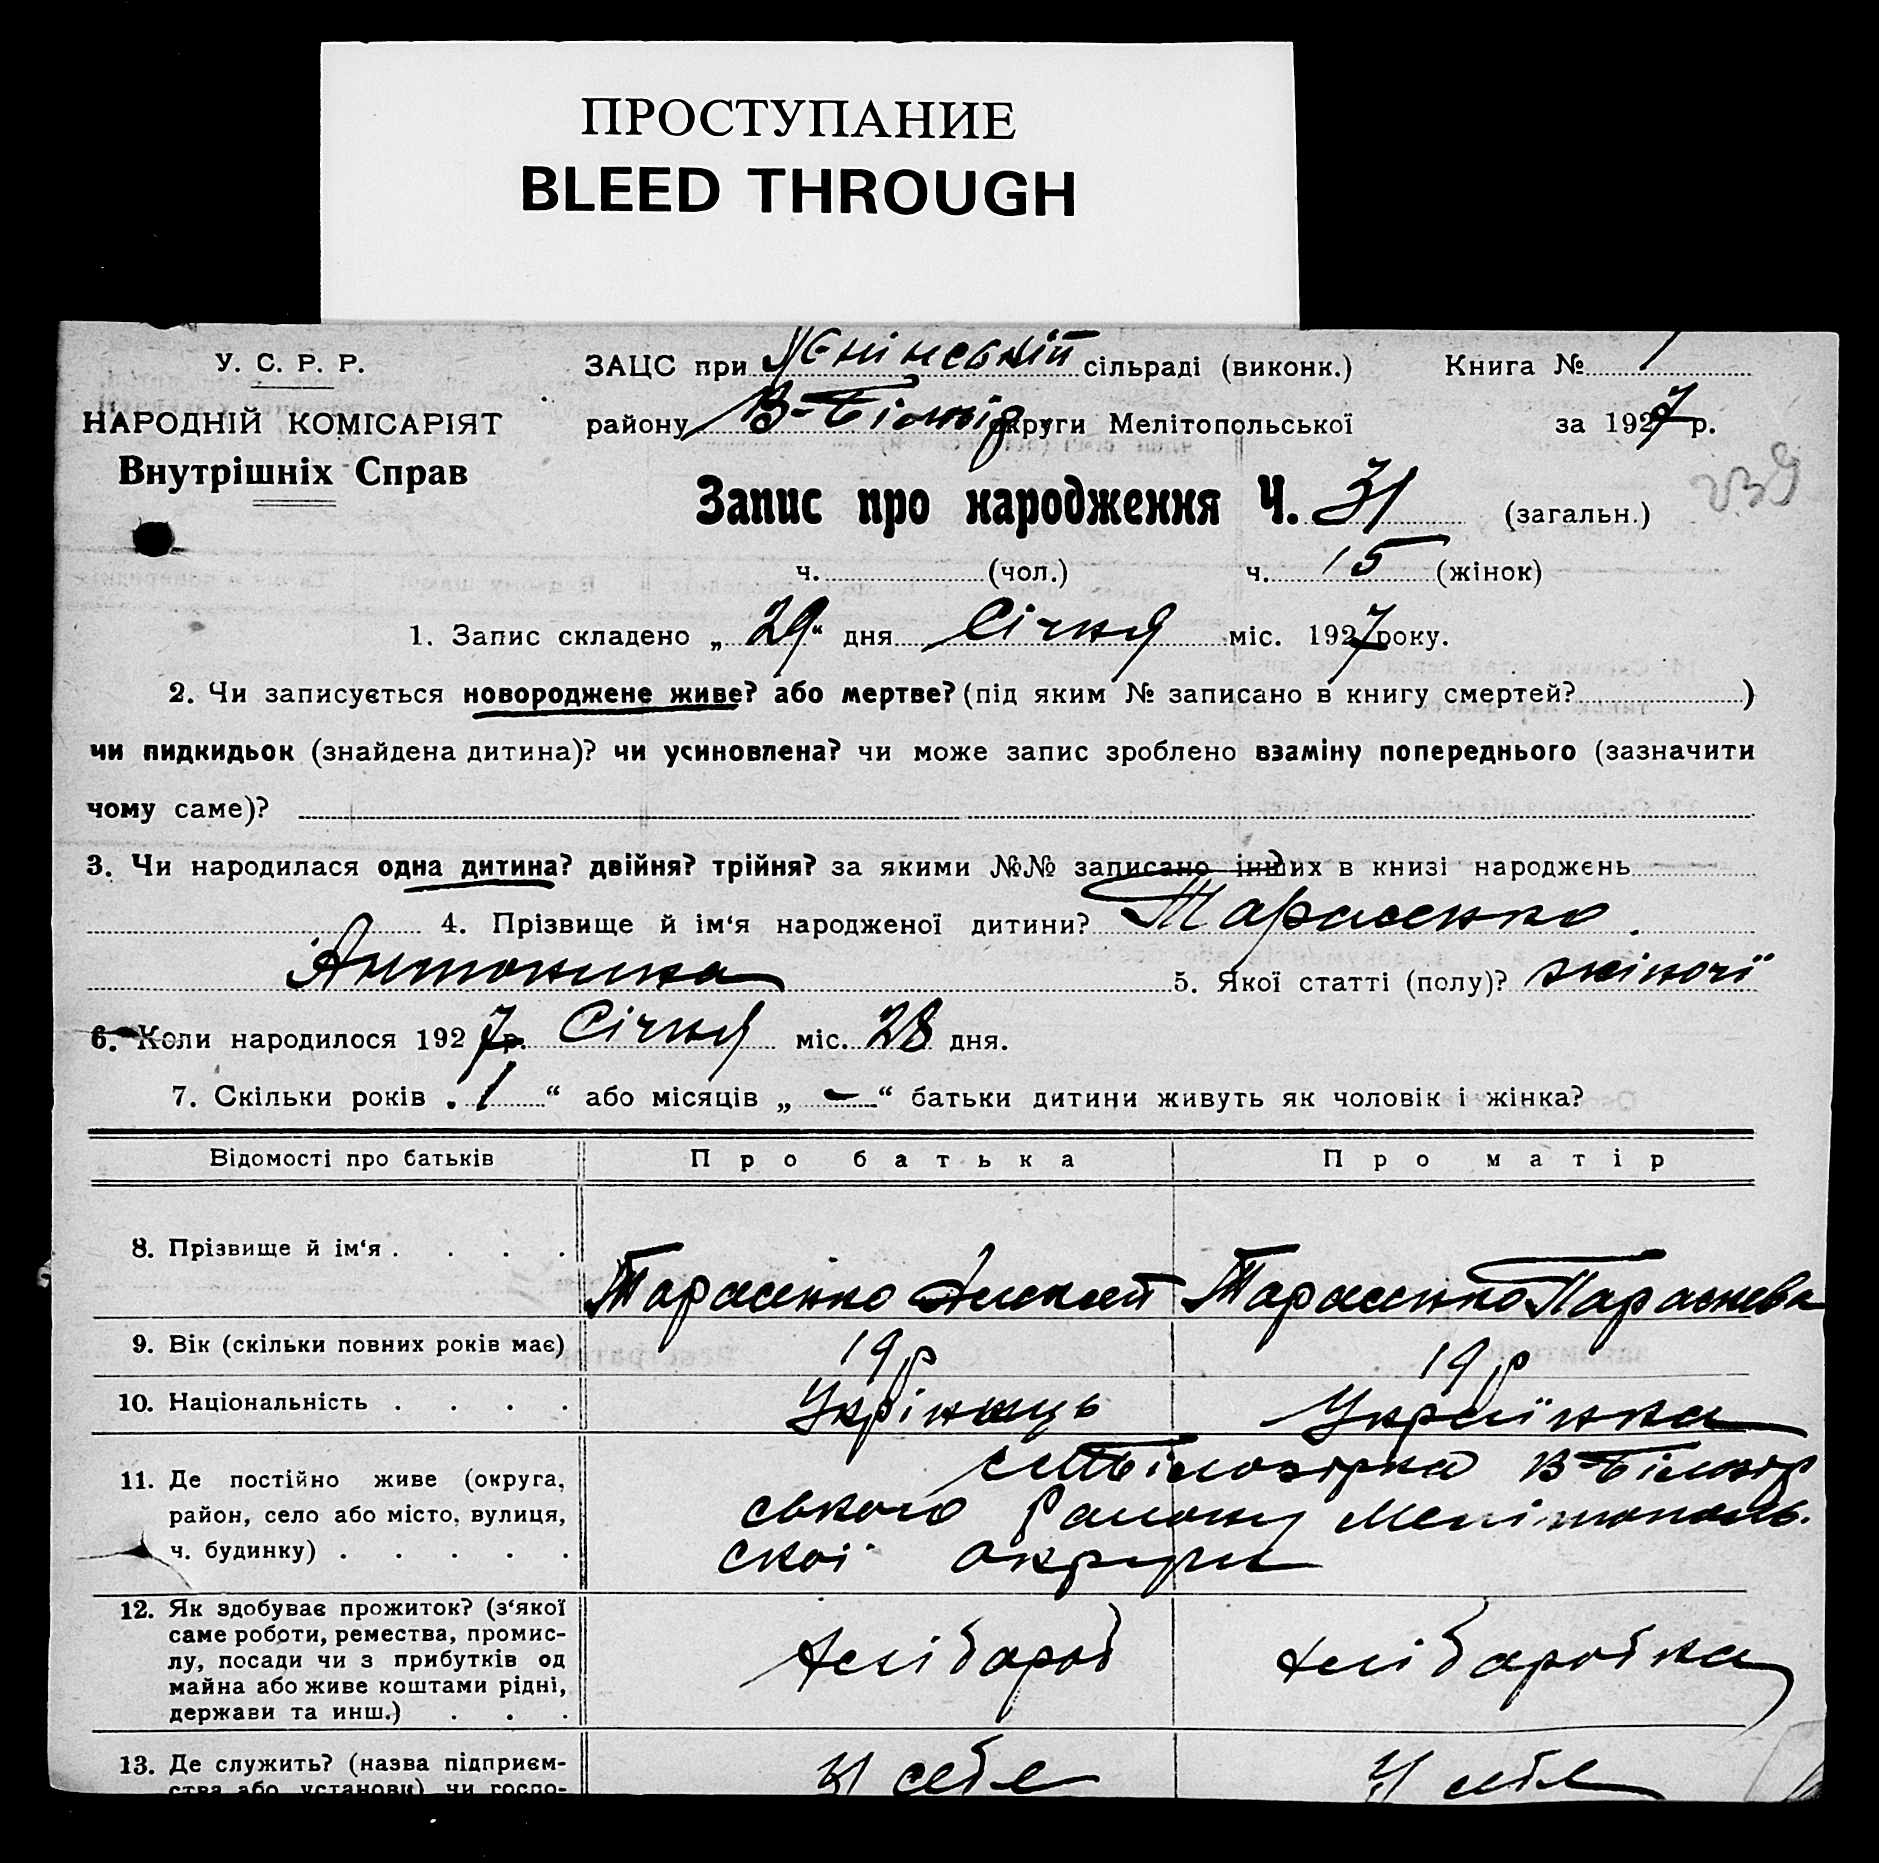 ПРОСТУПАНИЕ
BLEED THROUGH
У. С. Р. Р.
НАРОДНІЙ КОМІСАРІЯТ
Внутрішніх Справ
ЗАЦС при сільраді (виконк.) Книга № 1
району В-Білозір округи Мелітопольської за 1927 р.
Запис про народження Ч. 31 (загальн.)
ч. (чол.) ч. 15 (жінок)
1. Запис складено „ 29 “ дня Січня міс. 1927 року.
2. Чи записується новороджене живе? або мертве? (під яким № записано в книгу смертей? )
чи пидкидьок (знайдена дитина)? чи усиновлена? чи може запис зроблено взаміну попереднього (зазначити
чому саме)?
3. Чи народилася одна дитина? двійня? трійня? за якими №№ записано інших в книзі народжень
4. Прізвище й ім‘я народженої дитини? Тарасенко
Антонина 5. Якої статті (полу)? жіночі
6. Коли народилося 1927 р. Січня міс. 28 дня.
7. Скільки років „ 1 “ або місяців „ – “ батьки дитини живуть як чоловік і жінка?
Відомості про батьків Про батька Про матір
8. Прізвище й ім‘я . . . . Тарасенко Тарасенко
9. Вік (скільки повних років має) 19 р 19 р
10. Національність . . . . Українець Украінка
11. Де постійно живе (округа,
район, село або місто, вулиця,
ч. будинку) . . . . .
Білозірка В-Білозір
ського Району Мелітополь-
скоі округи
12. Як здобуває прожиток? (з‘якої
саме роботи, ремества, промис-
лу, посади чи з прибутків од
майна або живе коштами рідні,
держави та инш.) . . .
хлібороб хліборобка
13. Де служить? (назва підприєм-
ства або установи) чи госпо-
У себе У себе